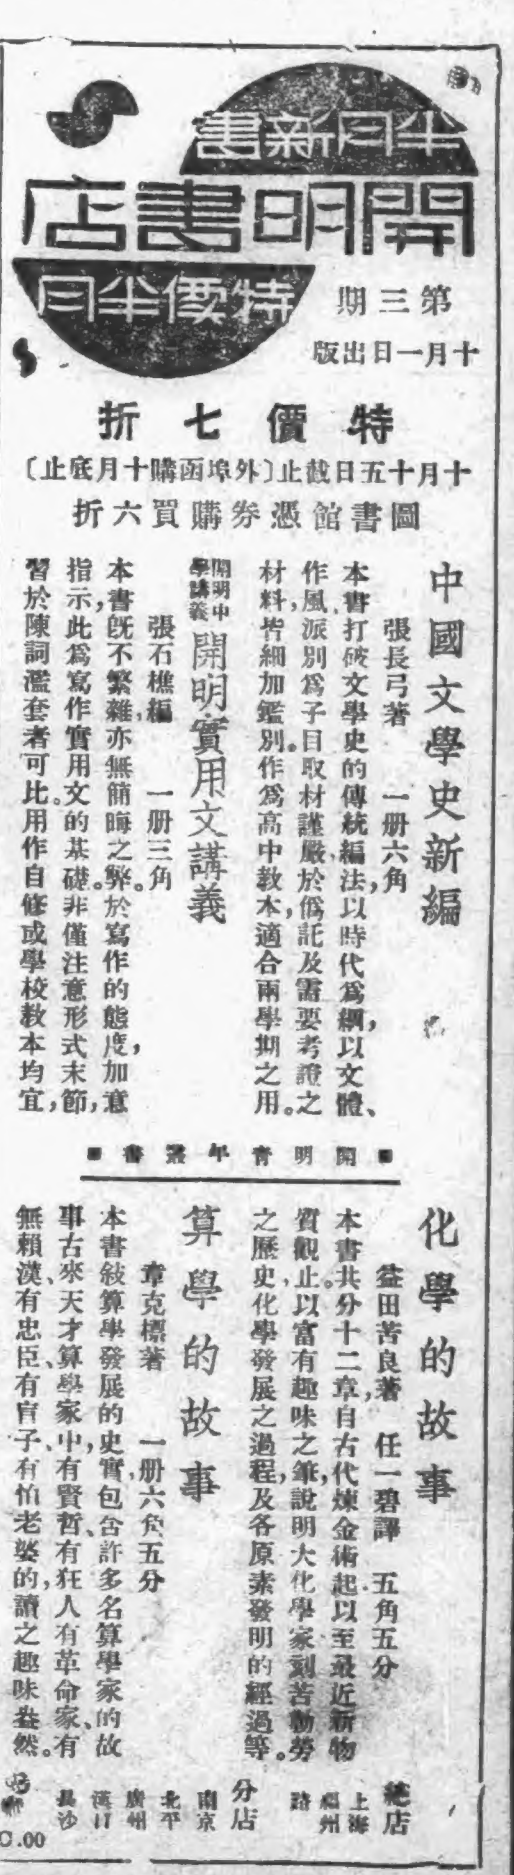 半月新書
開明書店
特價半月
第三期
十月一日出版
特價七折
十月十五日截止〔外埠函購十月底止〕
圖書館憑券購買六折
中國文學史新編
張長弓著　一冊六角
本書打破文學史的傳統編法，以時代爲綱，以文體、
作風，派別爲子目取材謹嚴於僞託及需要考證之
材料，皆細加鑑別。作爲高中教本，適合兩學期之用。
開明中學講義
開明實用文講義
張石樵編　一冊三角
本書旣不繁雜，亦無簡晦之弊。於寫作的態度，加意
指示，此爲寫作實用文的基礎。非僅注意形式末節，
習於陳詞濫套者可比。用作自修或學校教本均宜，
■開明青年叢書■
化學的故事
益田苦良著，任一碧譯　五角五分
本書共分十二章自古代煉金術起以至最近新物
質觀止。以富有趣味之筆，說明大化學家刻苦勤勞
之歷史，化學發展之過程，及各原素發明的經過等。
算學的故事
章克標著　一冊六角五分
本書敍算學發展的史實，包含許多名算學家的故
事古來天才算學家中，有賢哲、有狂人有革命家、有
無賴漢、有忠臣、有盲子、有怕老婆的，讀之趣味盎然。
總店
上海福州路
分店
南京
北平
廣州
漢口
長沙